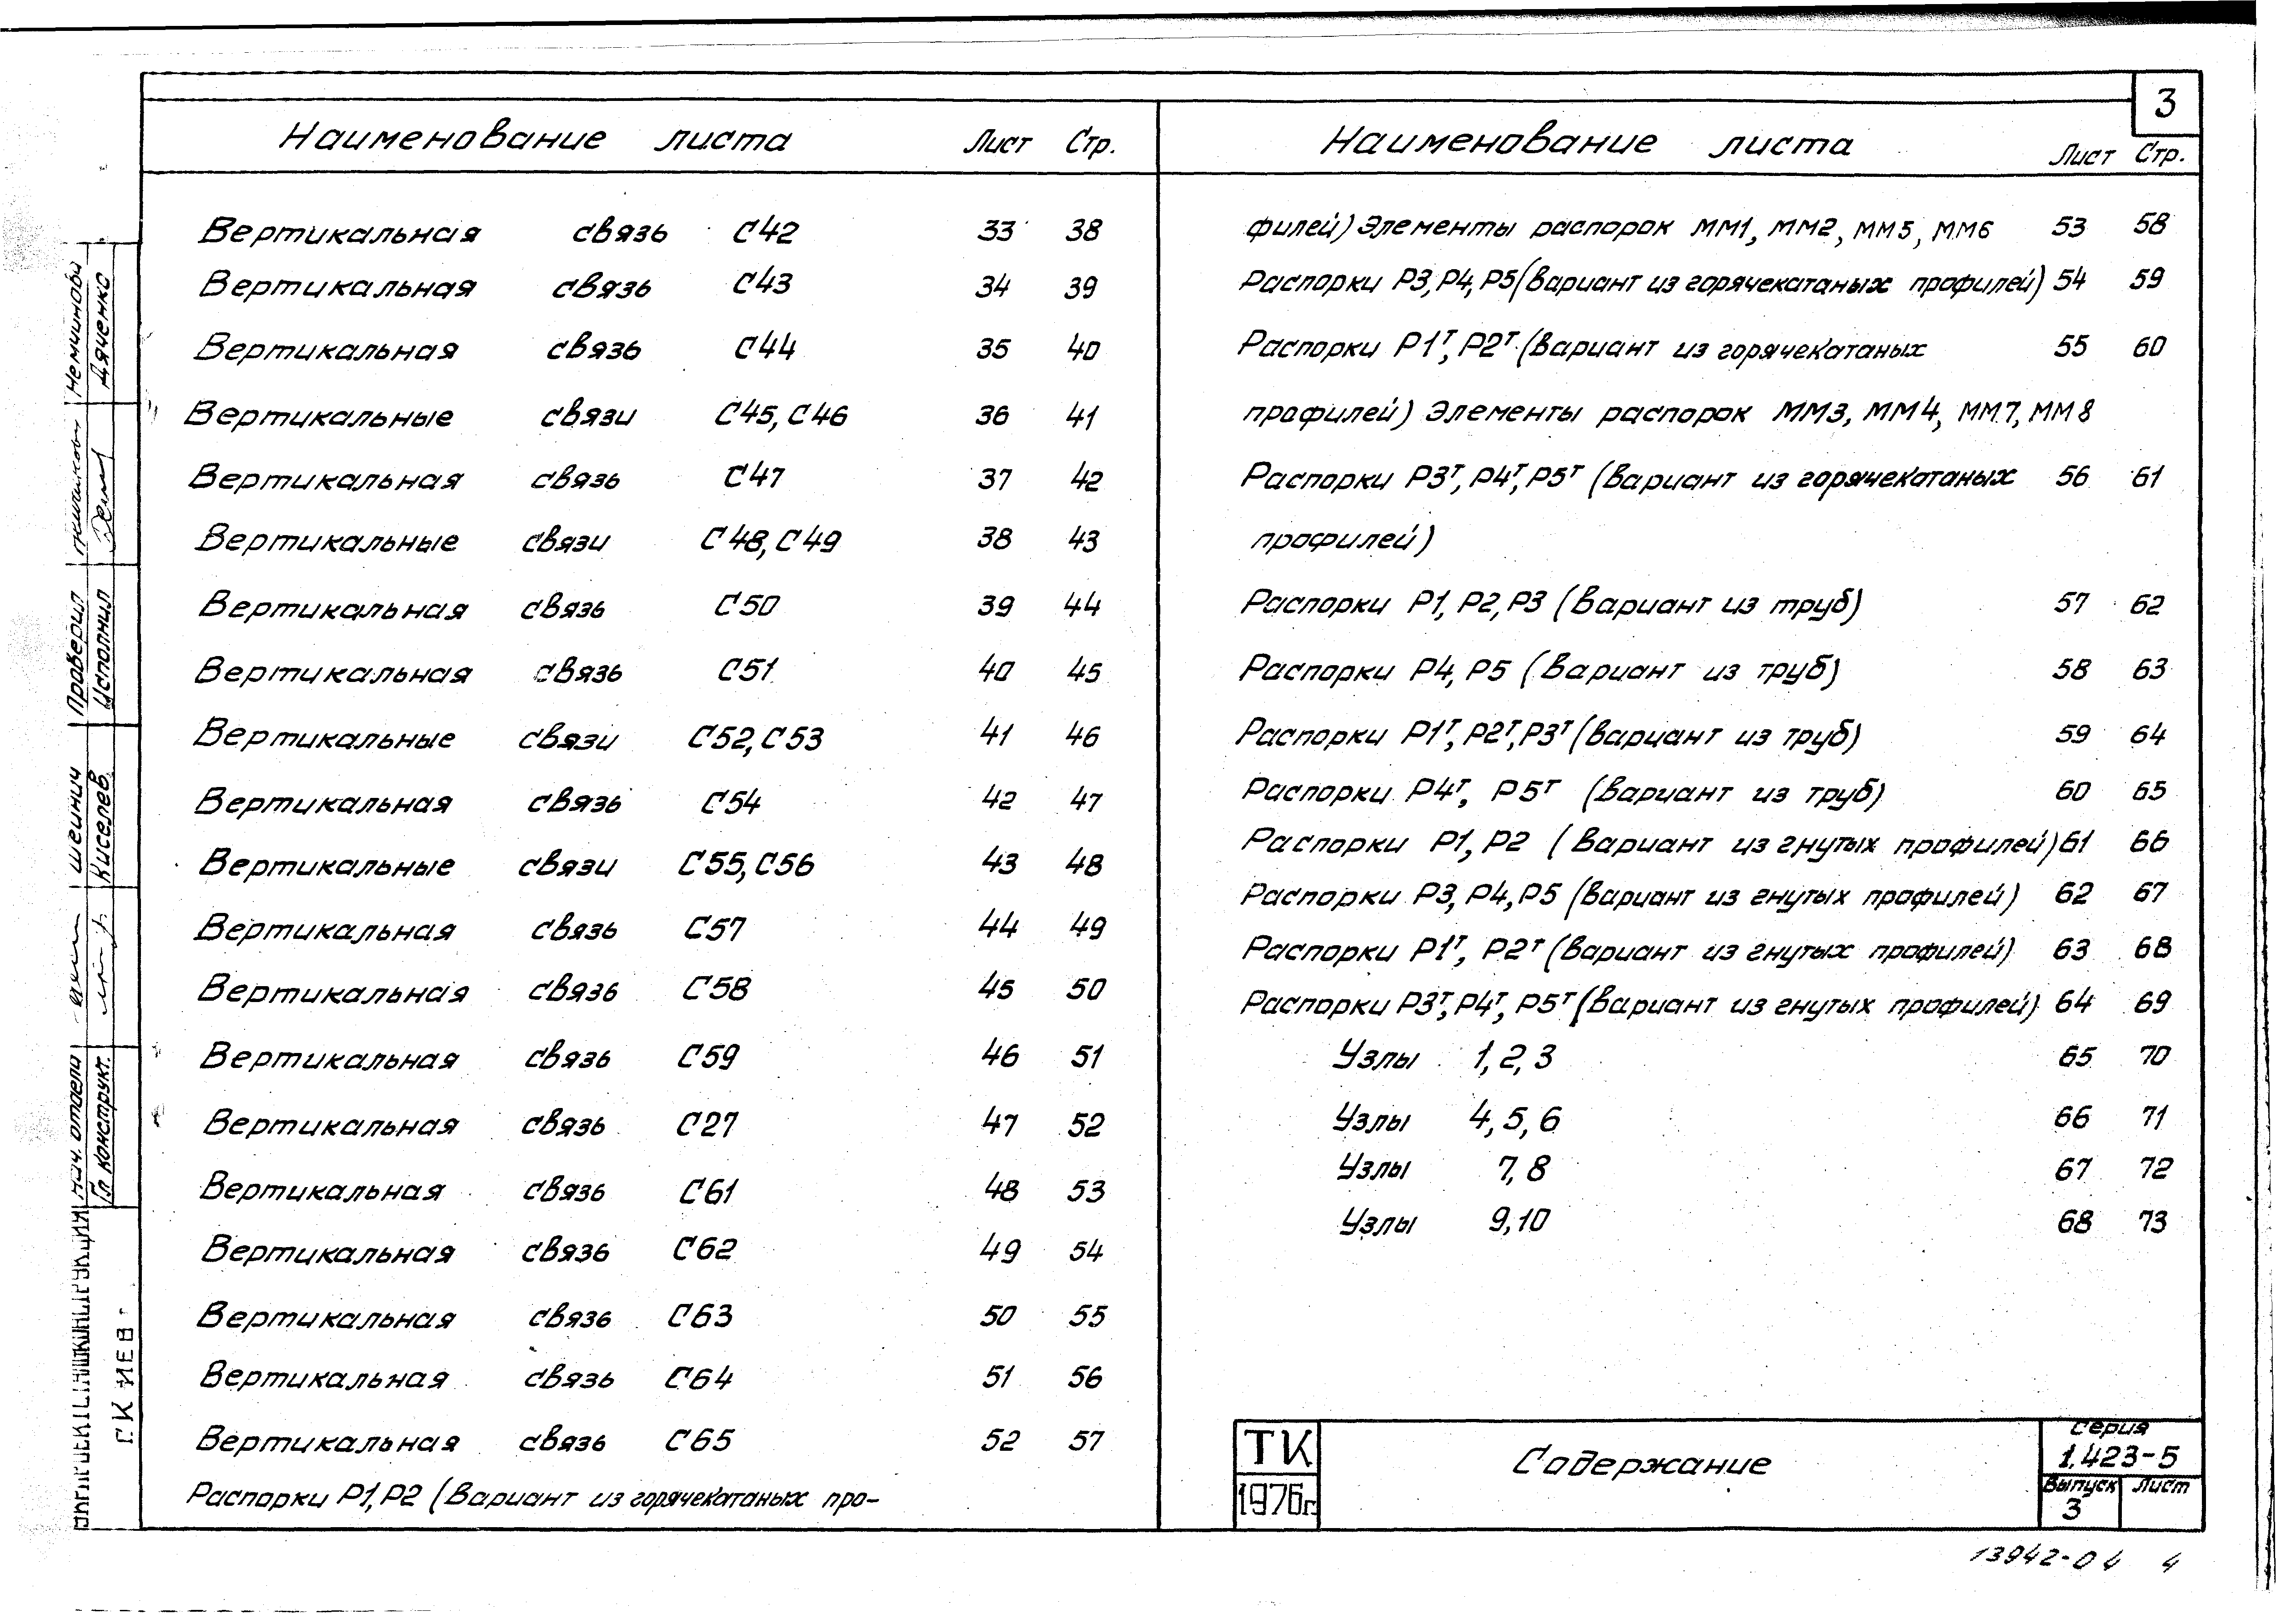 3
Наименование листа Лист Стр.
Вертикальная связь С42 33 38
Вертикальная связь С43 34 39
Вертикальная связь С44 35 40
Вертикальные связи С45, С46 36 41
Вертикальная связь С47 37 42
Вертикальные связи С48, С49 38 43
Вертикальная связь С50 39 44
Вертикальная связь С51 40 45
Вертикальные связи С52, С53 41 46
Вертикальная связь С54 42 47
Вертикальные связи С55, С56 43 48
Вертикальная связь С57 44 49
Вертикальная связь С58 45 50
Вертикальная связь С59 46 51
Вертикальная связь С27 47 52
Вертикальная связь С61 48 53
Вертикальная связь С62 49 54
Вертикальная связь С63 50 55
Вертикальная связь С64 51 56
Вертикальная связь С65 52 57
Распорки Р1, Р2 (Вариант из горячекатаных про-
Наименование листа Лист Стр.
филей) Элементы распорок ММ1, ММ2, ММ5, ММ6 53 58
Распорки Р3, Р4, Р5 (вариант из горячекатаных профилей) 54 59
Распорки Р1ᵀ, Р2ᵀ (вариант из горячекатаных 55 60
профилей) Элементы распорок ММ3, ММ4, ММ7, ММ8
Распорки Р3ᵀ, Р4ᵀ, Р5ᵀ (вариант из горячекатаных 56 61
профилей)
Распорки Р1, Р2, Р3 (вариант из труб) 57 62
Распорки Р4, Р5 (вариант из труб) 58 63
Распорки Р1ᵀ, Р2ᵀ, Р3ᵀ (вариант из труб) 59 64
Распорки Р4ᵀ, Р5ᵀ (вариант из труб) 60 65
Распорки Р1, Р2 (вариант из гнутых профилей) 61 66
Распорки Р3, Р4, Р5 (вариант из гнутых профилей) 62 67
Распорки Р1ᵀ, Р2ᵀ (вариант из гнутых профилей) 63 68
Распорки Р3ᵀ, Р4ᵀ, Р5ᵀ (вариант из гнутых профилей) 64 69
Узлы 1, 2, 3 65 70
Узлы 4, 5, 6 66 71
Узлы 7, 8 67 72
Узлы 9, 10 68 73
ТК
1976г.
Содержание
Серия
1.423-5
Выпуск Лист
3
13942-04 4
Дяченко
Проверил
Исполнил
Киселев
Нач. отдела
Гл конструкт.
г. Киев